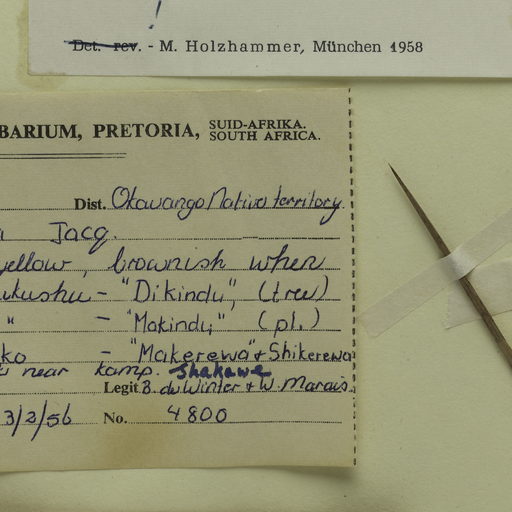 Det. rev. - M. Holzhammer, München 1958
BARIUM, PRETORIA, SUID-AFRIKA. SOUTH AFRICA.
Dist. Okawango Native territory
Jacq.
yellow, brownish when
ukushu - "Dikindu", (tree)
" - "Makindu" (pl.)
ko - "Makerewa" + Shikerewa
near kamp. Shakawe
Legit B. de Winter & W. Marais.
3/2/56 No. 4800